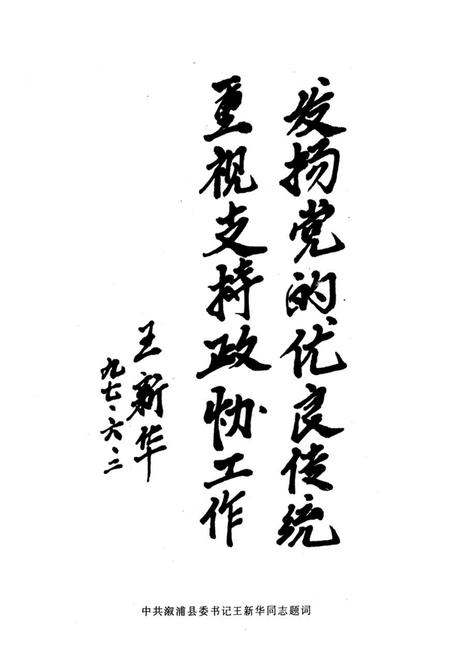 发扬党的优良传统
重视支持政协工作
王新华
九七·六·二
中共溆浦县委书记王新华同志题词